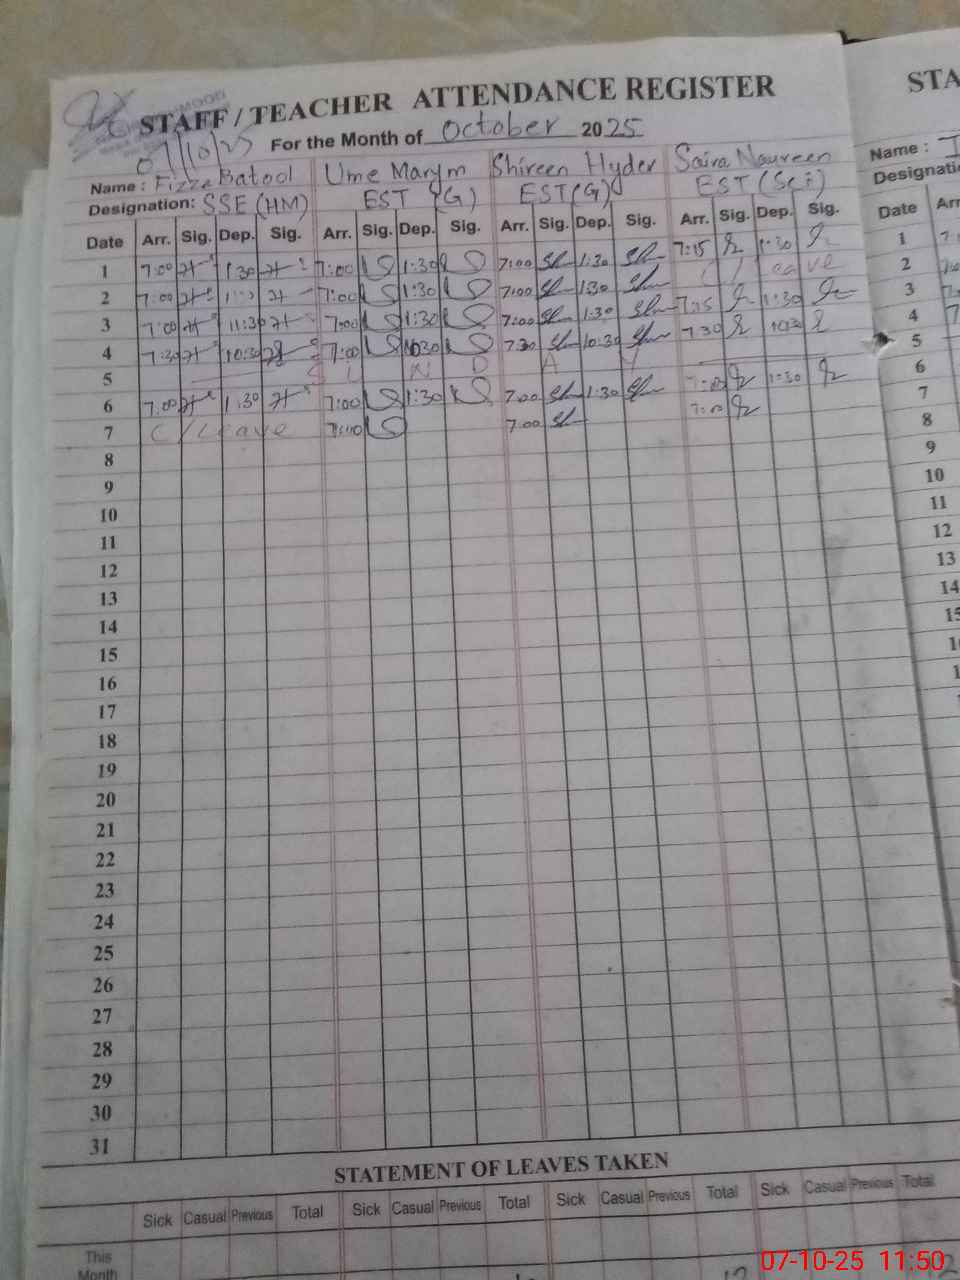 STAFF / TEACHER ATTENDANCE REGISTER
STA
07/10/25 For the Month of October 2025
Name : Fizza Batool Ume Marym Shireen Hyder Saira Naureen
Name :
Designation: SSE (HM) EST (G) EST (G) EST (Sci)
Designati
Date Arr. Sig. Dep. Sig. Arr. Sig. Dep. Sig. Arr. Sig. Dep. Sig. Arr. Sig. Dep. Sig.
Date Arr
1 7:00 1:30 7:00 1:30 7:00 1:30 7:15 1:30
2 7:00 7:00 1:30 7:00 1:30 C/Leave
3 7:00 11:30 7:00 1:30 7:00 1:30 7:15 1:30
4 7:30 10:30 7:00 10:30 7:30 10:30 7:30 10:30
5 S U N D A Y
6 7:00 1:30 7:00 1:30 7:00 1:30 7:00 1:30
7 C/Leave 7:00 7:00 7:00
8
9
10
11
12
13
14
15
16
17
18
19
20
21
22
23
24
25
26
27
28
29
30
31
1
2
3
4
5
6
7
8
9
10
11
12
13
14
15
STATEMENT OF LEAVES TAKEN
Sick Casual Previous Total Sick Casual Previous Total Sick Casual Previous Total Sick Casual Previous Total
This
Month
07-10-25 11:50